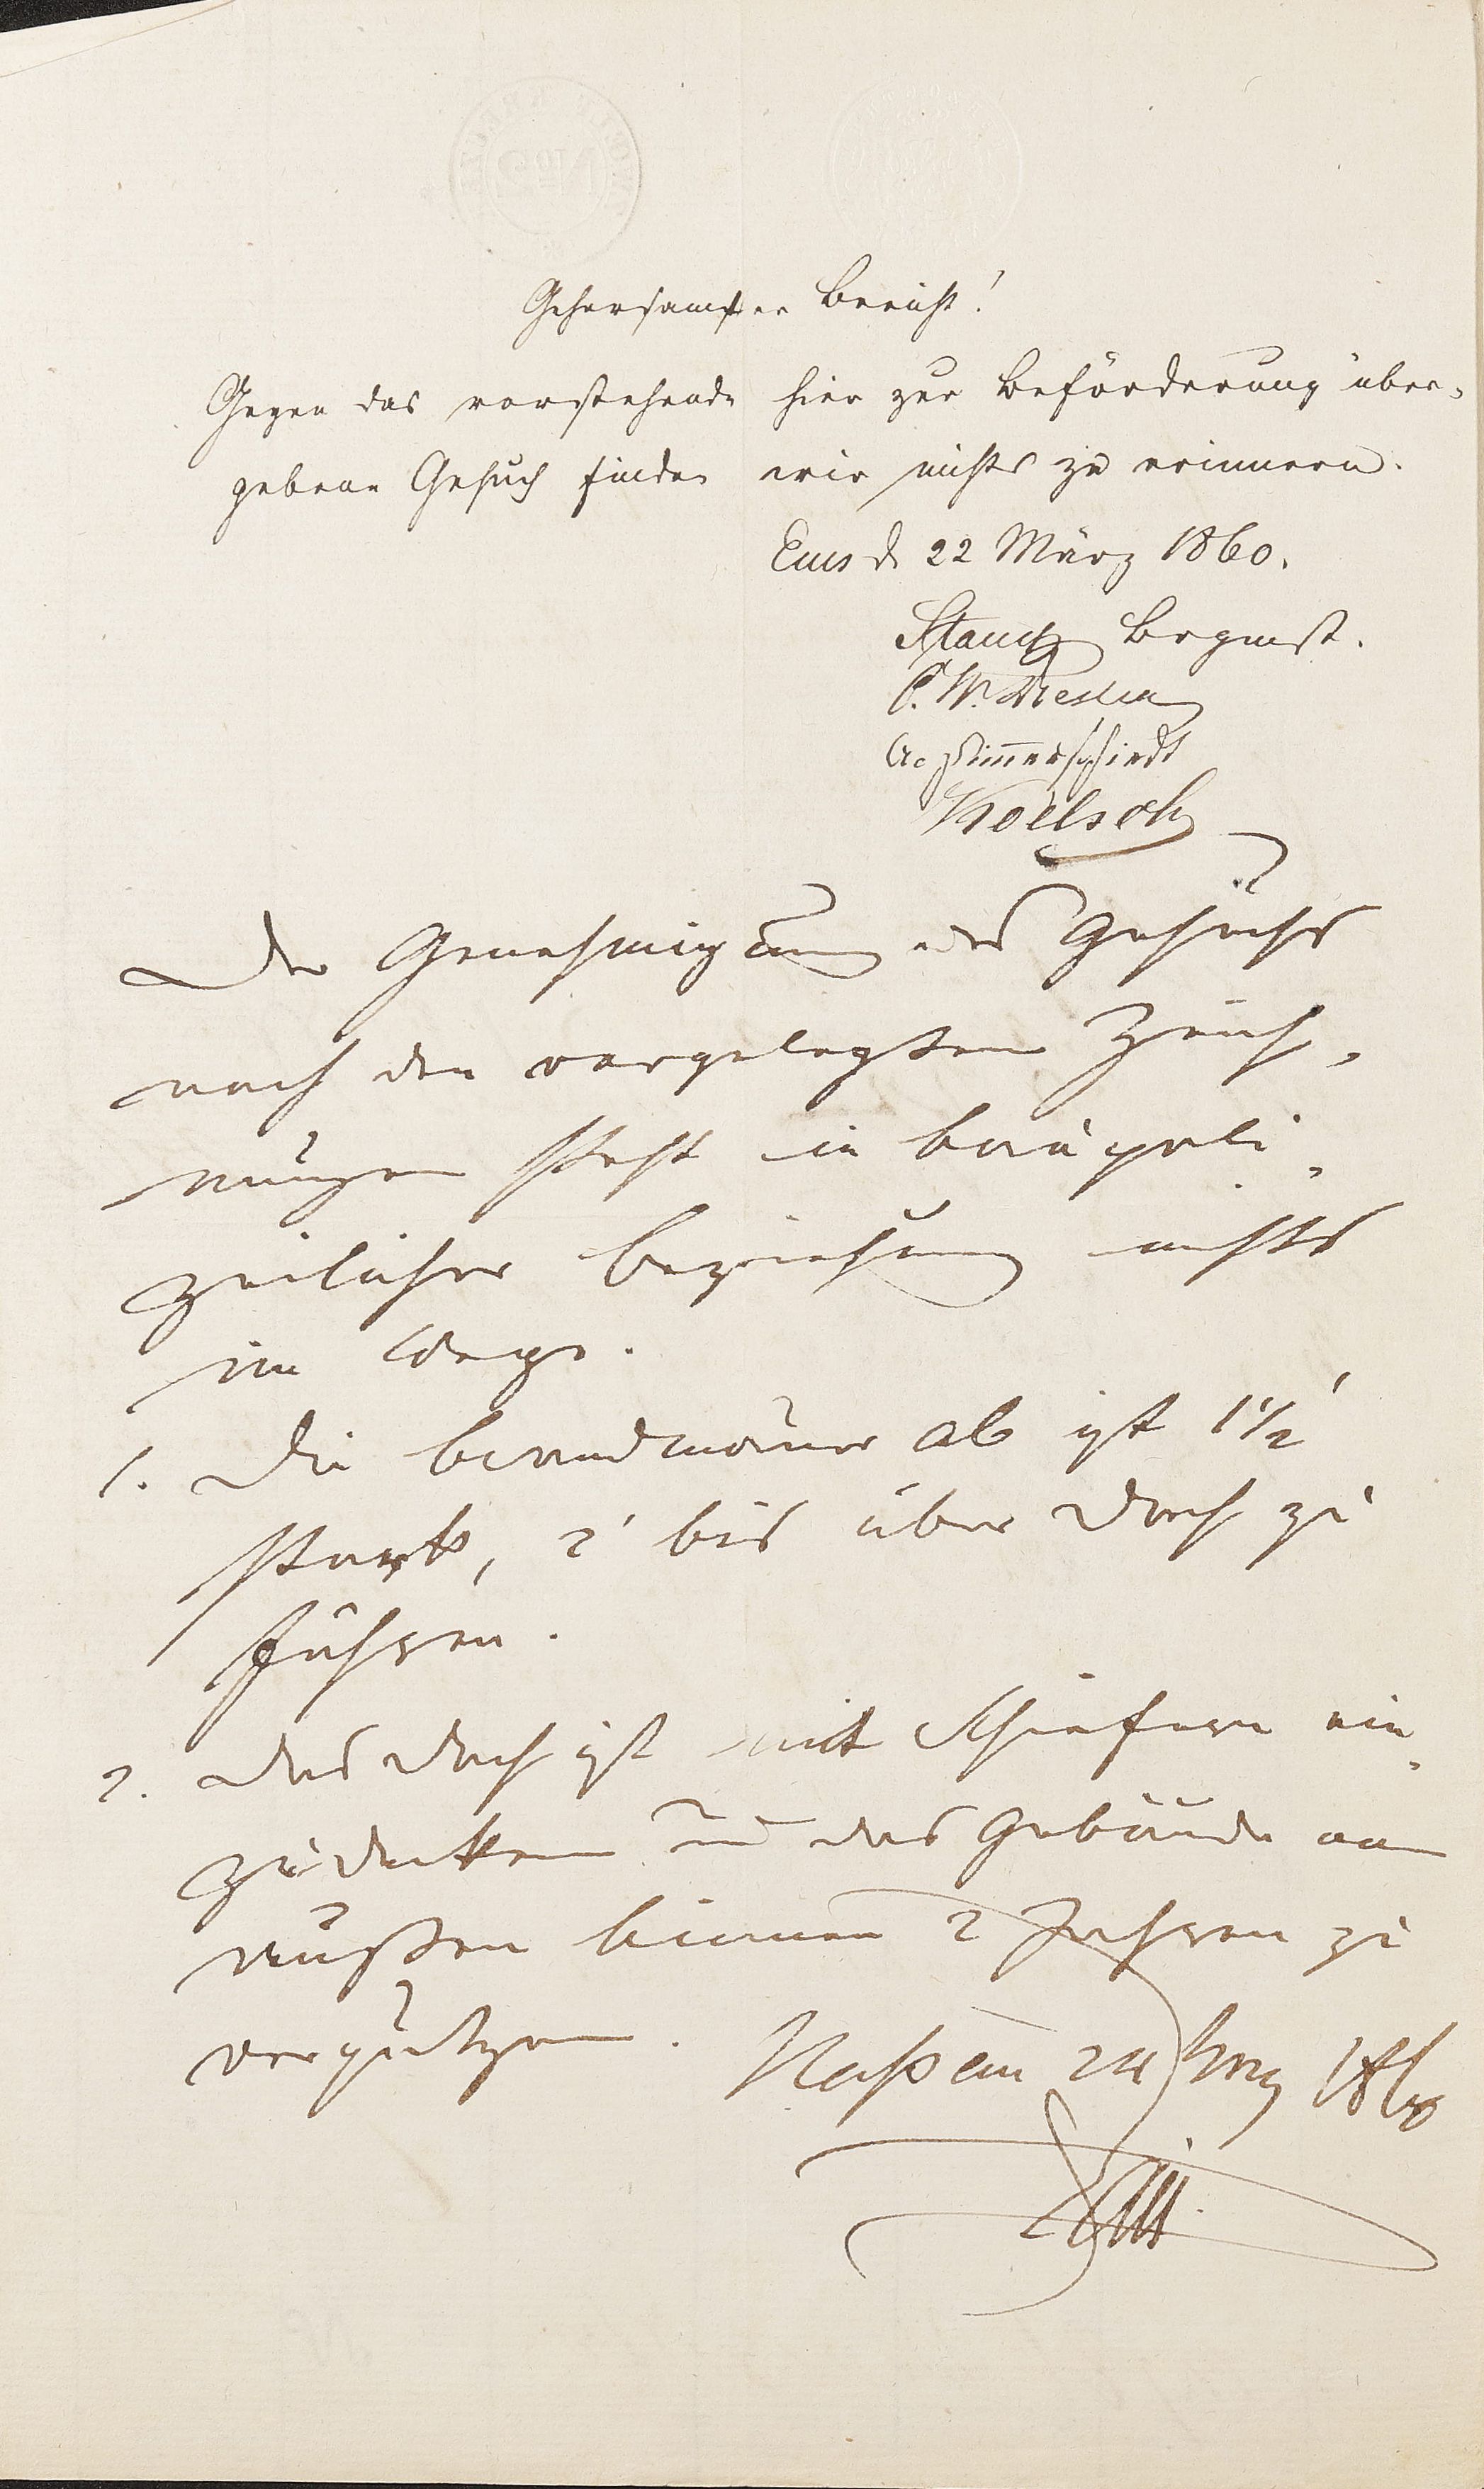 Gehorsamster Bericht!
Gegen das vorstehende hier zur Beförderung über-
gebene Gesuch finden wir nichts zu erinnern.
Ems d. 22 März 1860.
Stauch Brgmst.
C. W.
A. Zimmerschiedt
Koelsch
Der Genehmigung des Gesuchs
nach den vorgelegten Zeich-
nungen steht in baupoli-
zeilicher Beziehung nichts
im Wege.
1. Die Brandmauer ab ist 1 1/2'
stark, 2' bis über Dach zu
führen.
2. Das Dach ist mit Schiefern ein-
zudecken und das Gebäude von
außen binnen 2 Jahren zu
verputzen. Naßau 24 März 1860